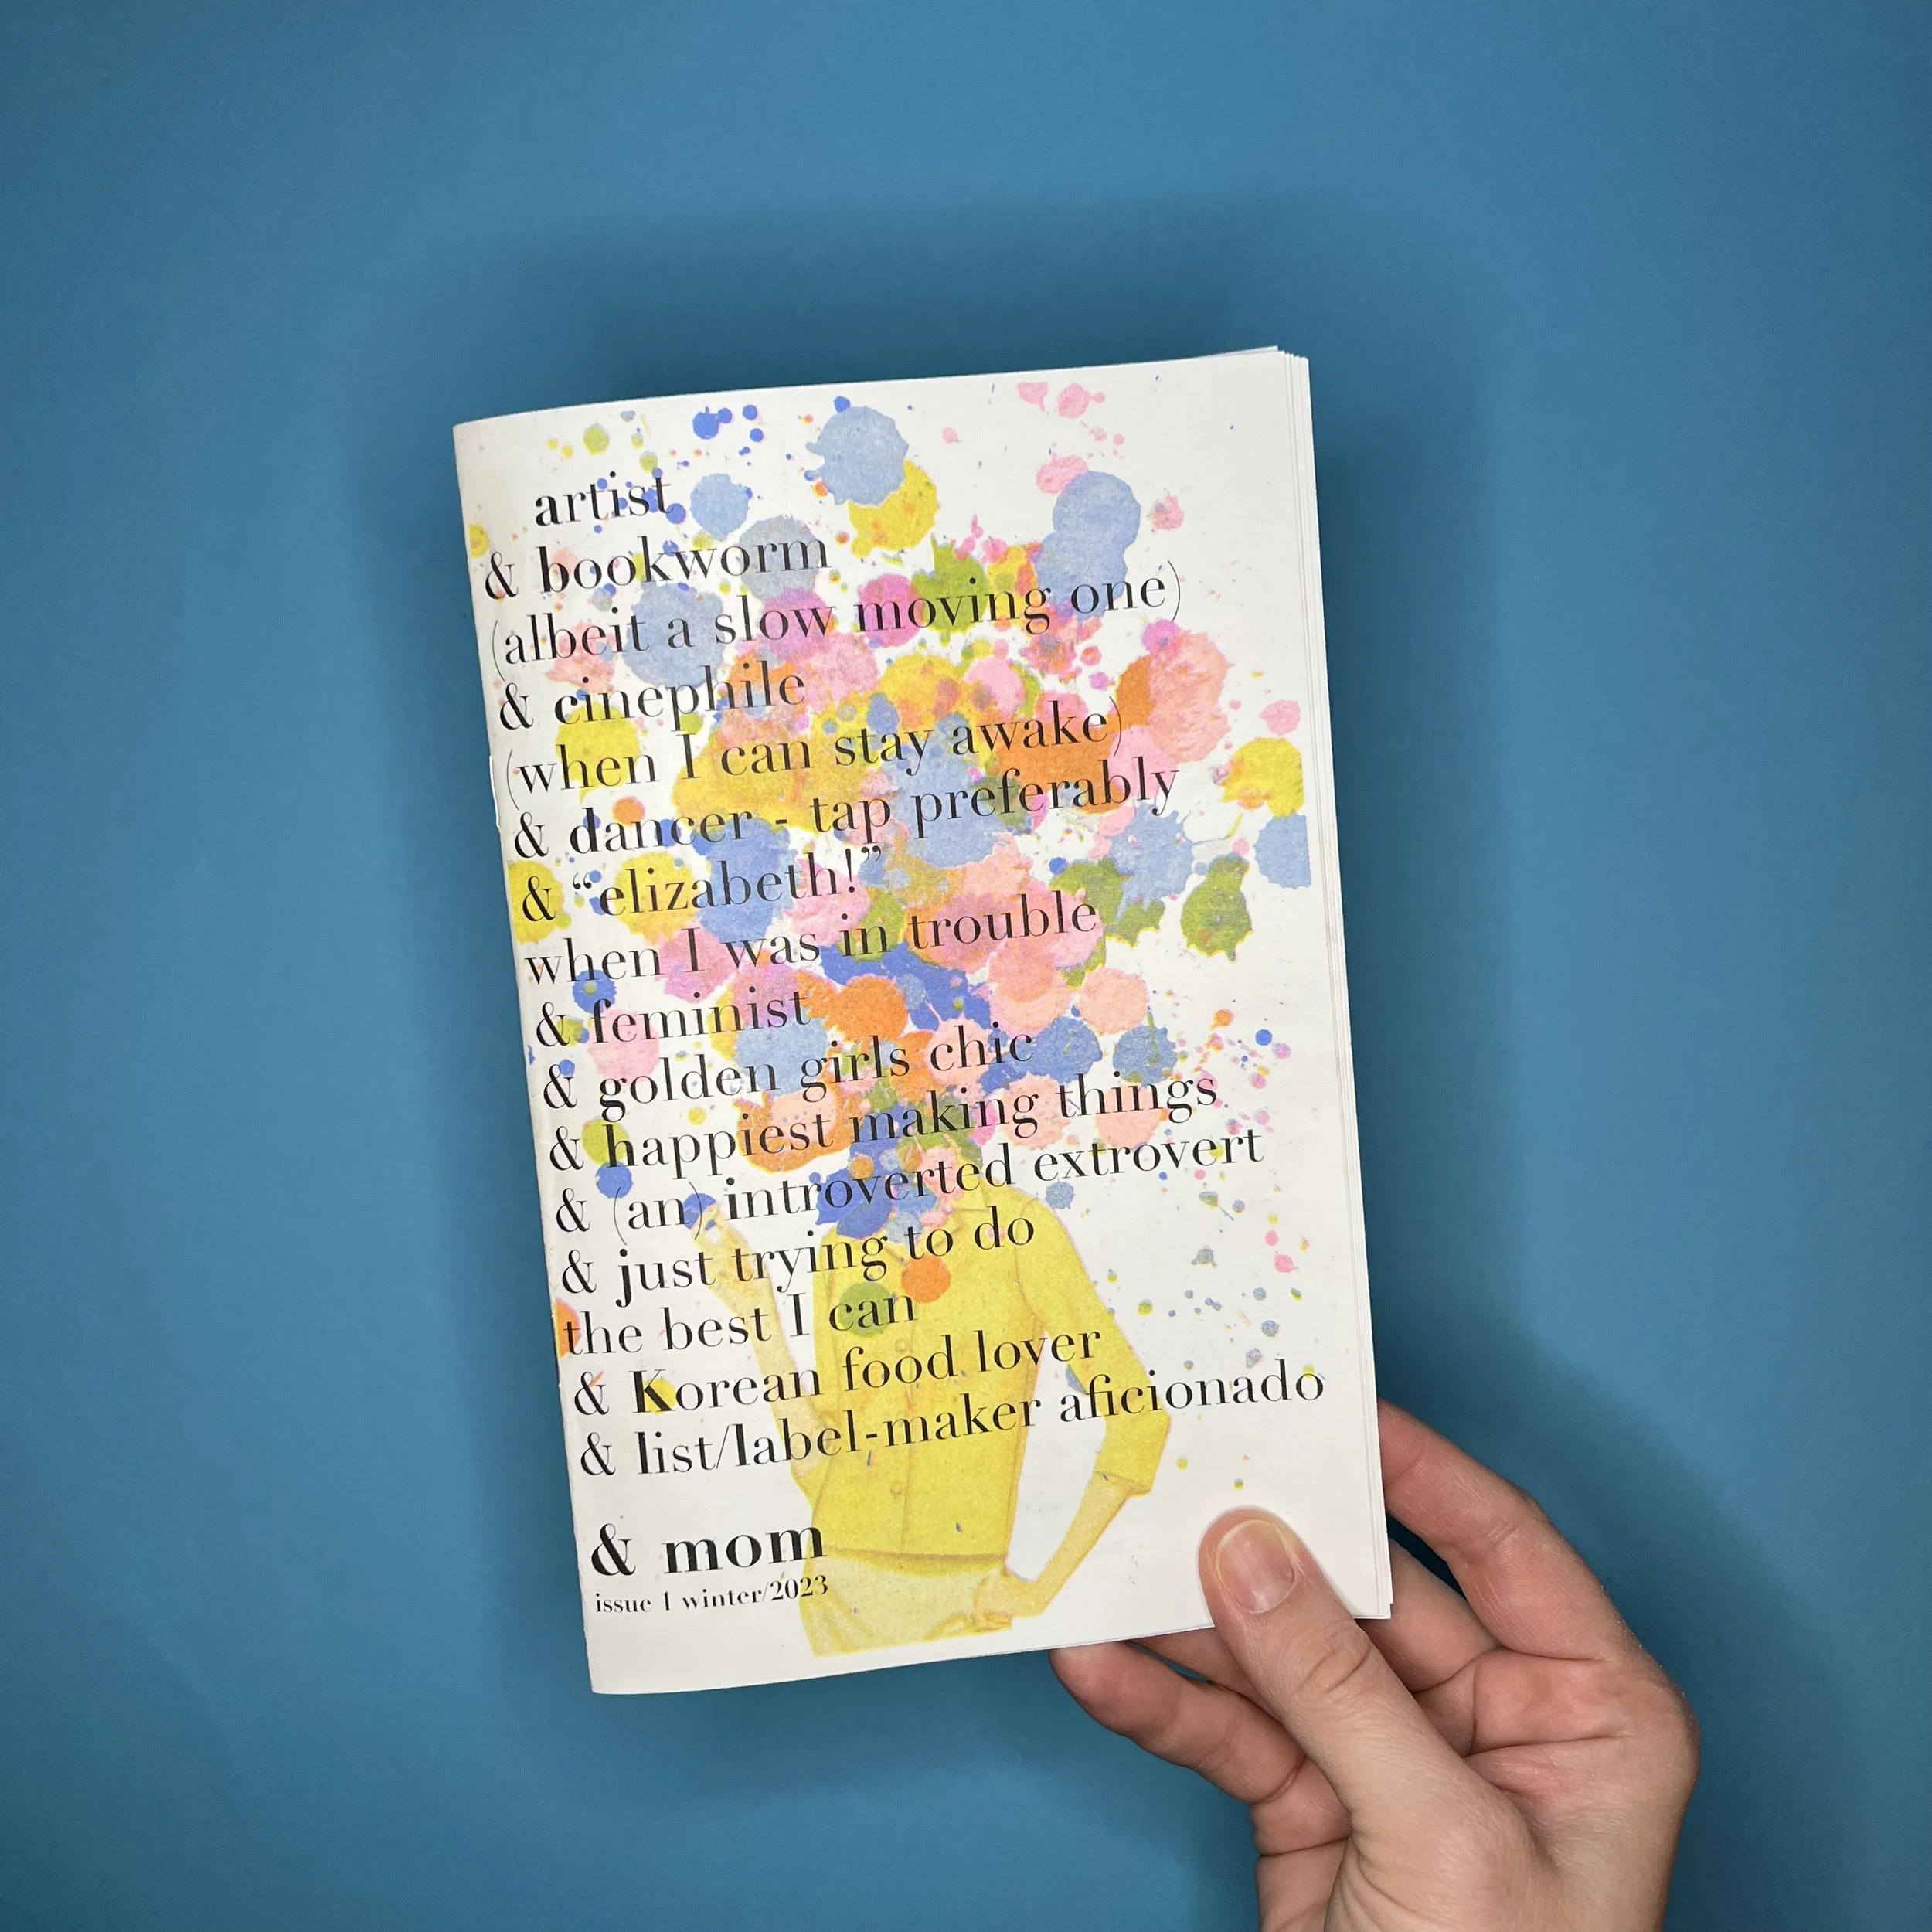 artist
& bookworm
(albeit a slow moving one)
& cinephile
(when I can stay awake)
& dancer - tap preferably
& “elizabeth!”
when I was in trouble
& feminist
& golden girls chic
& happiest making things
& (an) introverted extrovert
& just trying to do
the best I can
& Korean food lover
& list/label-maker aficionado
& mom
issue 1 winter/2023